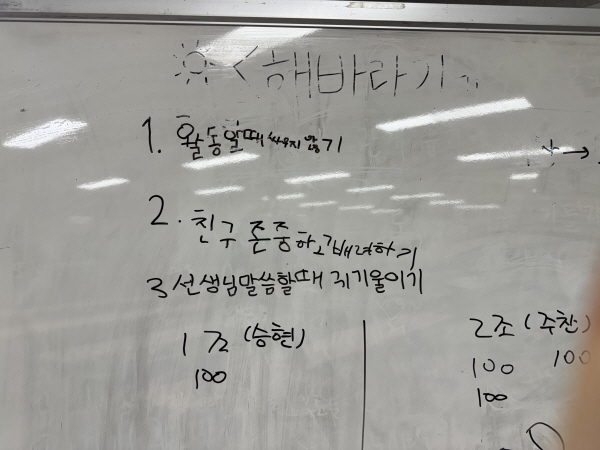 <해바라기>
1. 활동할때 싸우지 않기
2. 친구 존중하고 배려하기
3 선생님말씀할때 귀기울이기
1조 (승현)
2조 (주찬)
100
100 100
100